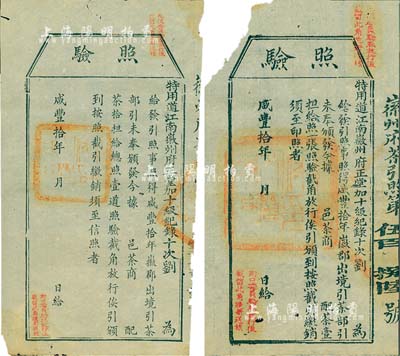 照驗
特用道江南徽州府正堂加十級紀錄十次劉 為
給發引照事照得咸豐拾年徽郡出境引茶部引
未奉頒發今據 邑茶商 配茶壹
担給照一張照驗截角放行俟引頒到按照截引繳銷
須至印照者
咸豐拾年 月 日給
徽州府茶引照第 伍百 號
照驗
特用道江南徽州府正堂加十級紀錄十次劉 為
給發引照事照得咸豐拾年徽郡出境引茶
部引未奉頒發今據 邑茶商 配
茶拾担給總照壹道照驗截角放行俟引頒
到按照截引繳銷須至信照者
咸豐拾年 月 日給